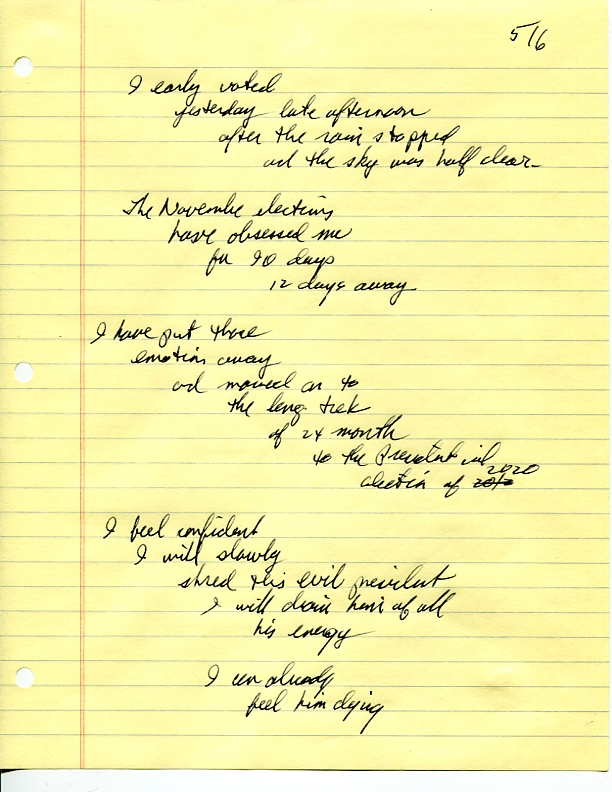 5/6
I early voted
yesterday late afternoon
after the rain stopped
and the sky was half clear—
The November elections
have obsessed me
for 90 days
12 days away
I have put those
emotions away
and moved on to
the long trek
of 24 month
to the Presidential
2020
election of 2012
I feel confident
I will slowly
shred this evil president
I will drain him of all
his energy
I can already
feel him dying